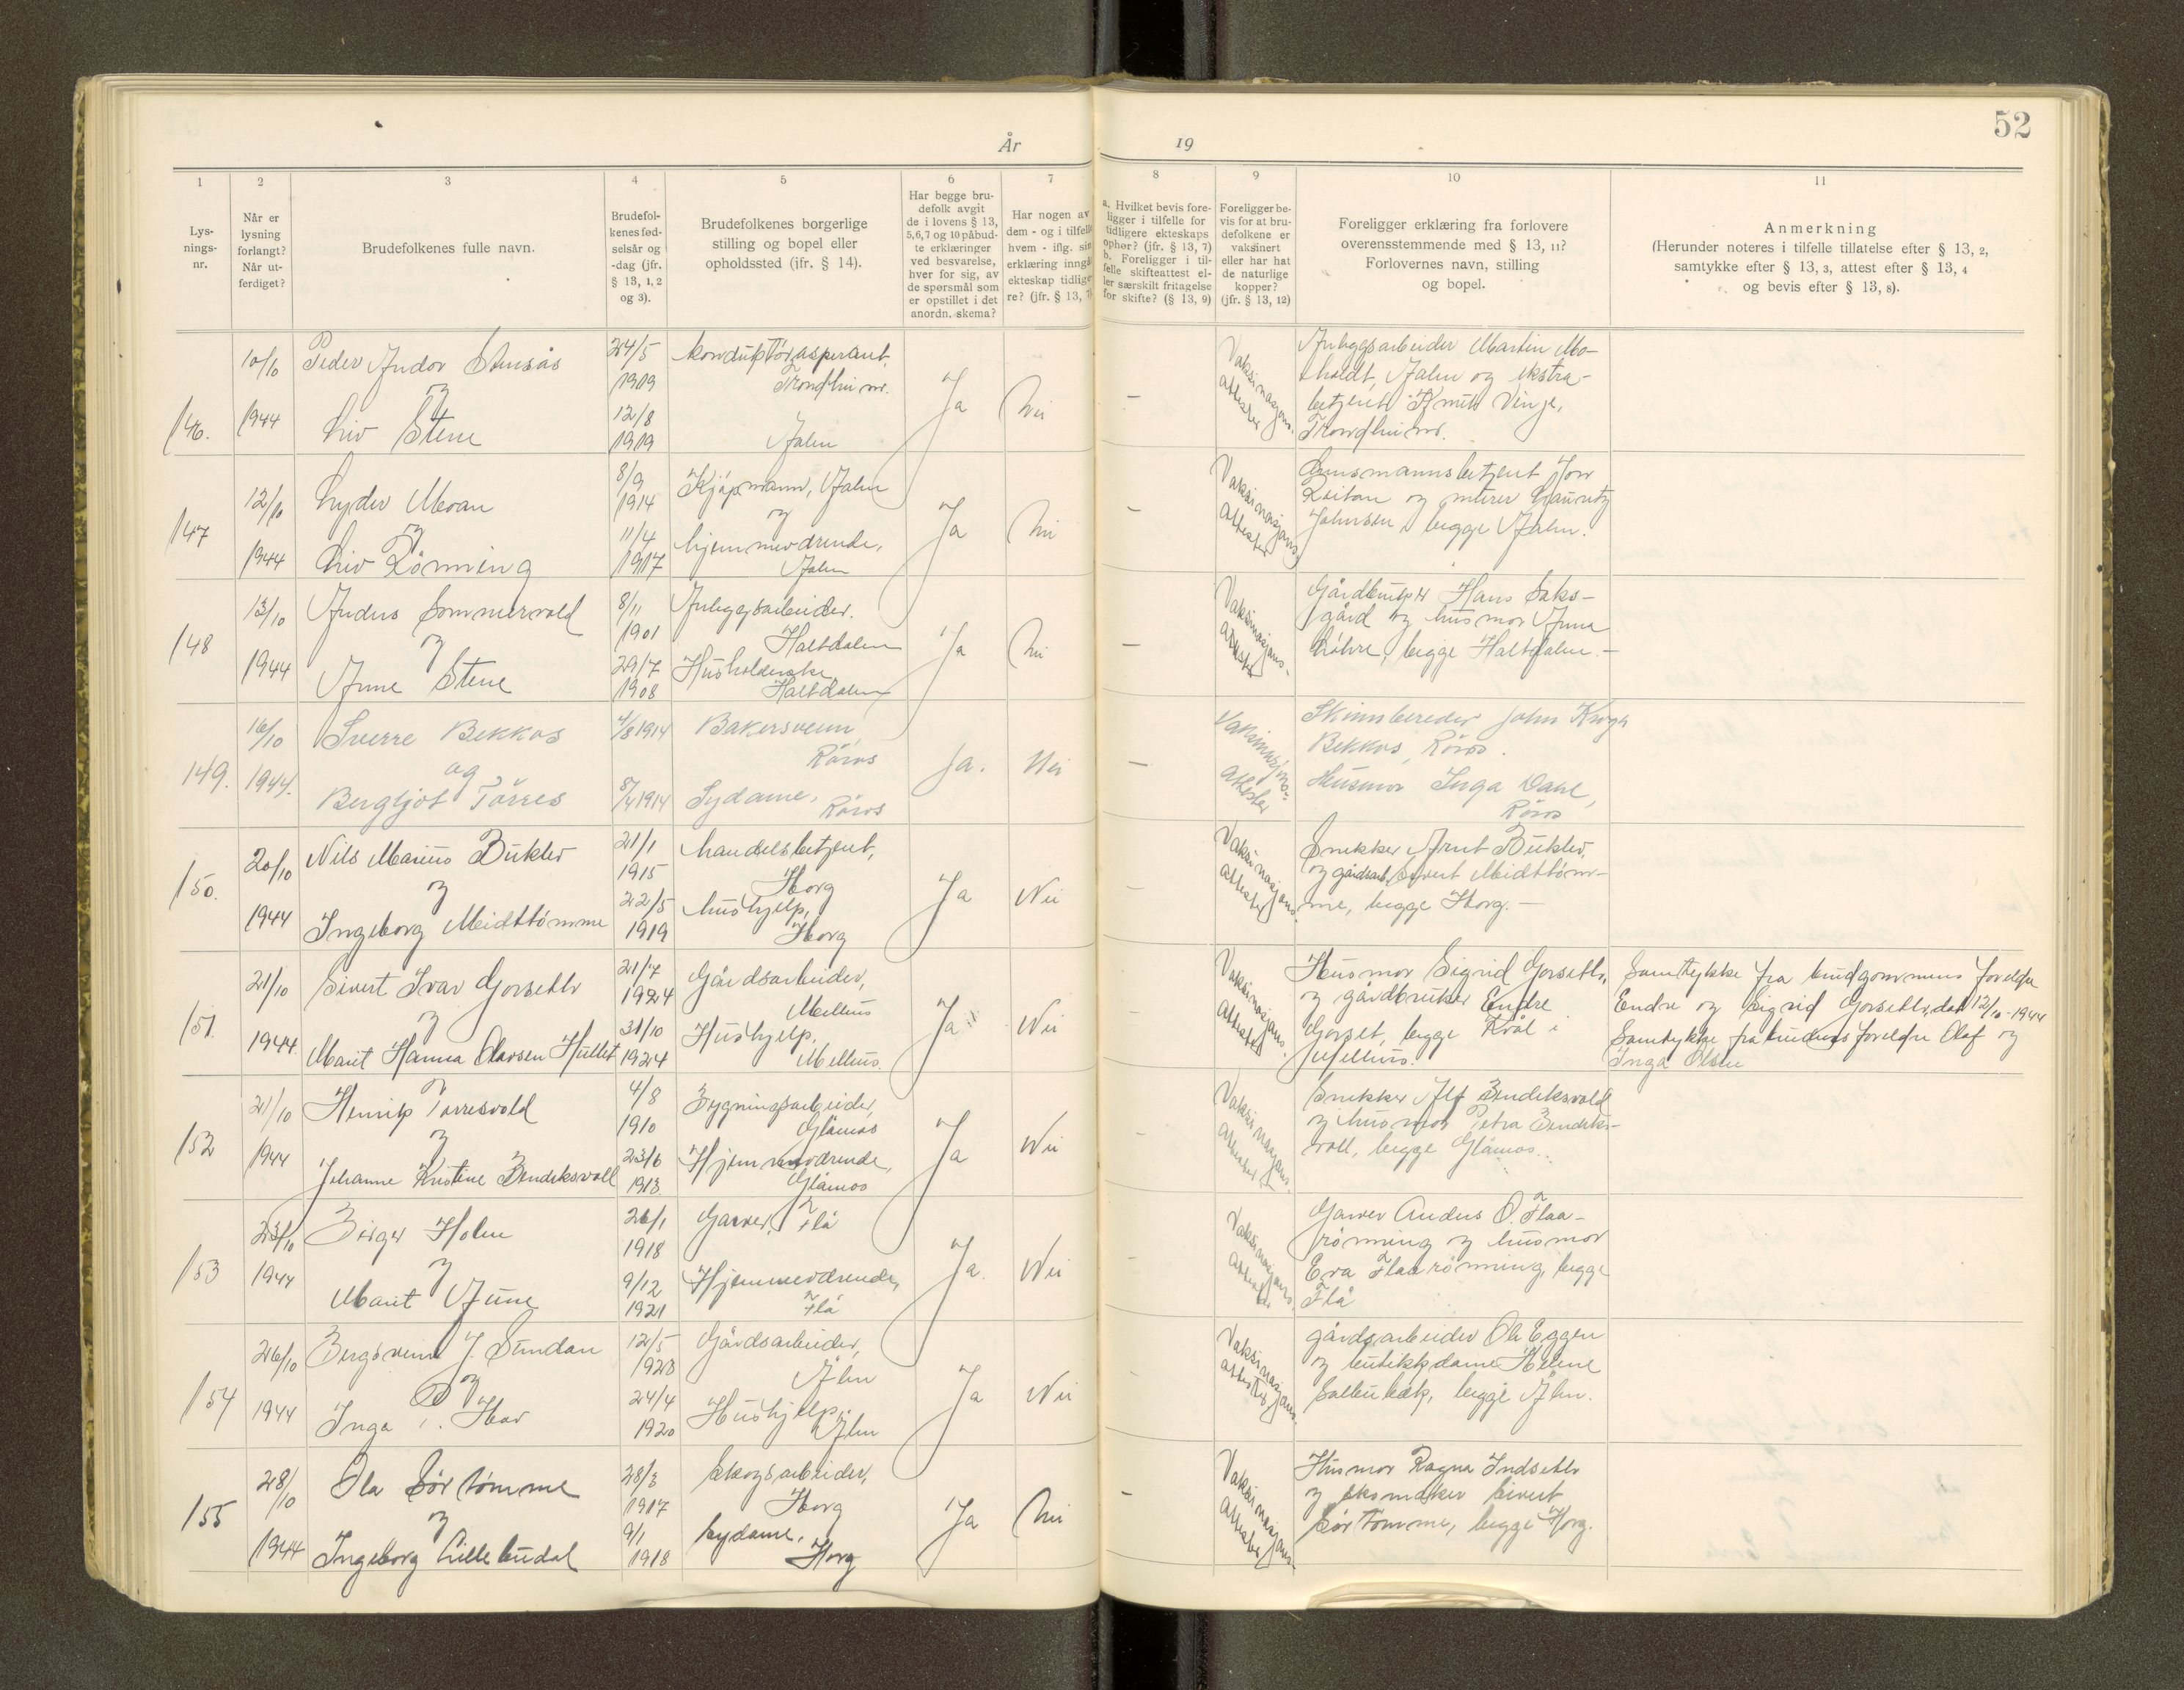 52
År
19
1
Lys-
nings-
nr.
2
Når er
lysning
forlangt?
Når ut-
ferdiget?
3
Brudefolkenes fulle navn.
4
Brudefol-
kenes fød-
selsår og
-dag (jfr.
§ 13, 1, 2
og 3).
5
Brudefolkenes borgerlige
stilling og bopel eller
opholdssted (jfr. § 14).
6
Har begge bru-
defolk avgit
de i lovens § 13,
5,6,7 og 10 påbud-
te erklæringer
ved besvarelse,
hver for sig, av
de spørsmål som
er opstillet i det
anordn. skema?
7
Har nogen av
dem - og i tilfelle
hvem - iflg. sin
erklæring inngå
ekteskap tidlige
re? (jfr. § 13, 7)
8
a. Hvilket bevis fore-
ligger i tilfelle for
tidligere ekteskaps
ophør? (jfr. § 13, 7)
b. Foreligger i til-
felle skifteattest el-
ler særskilt fritagelse
for skifte? (§ 13, 9)
9
Foreligger be-
vis for at bru-
defolkene er
vaksinert
eller har hat
de naturlige
kopper?
(jfr. § 13, 12)
10
Foreligger erklæring fra forlovere
overensstemmende med § 13, 11?
Forlovernes navn, stilling
og bopel.
11
Anmerkning
(Herunder noteres i tilfelle tillatelse efter § 13, 2,
samtykke efter § 13, 3, attest efter § 13, 4
og bevis efter § 13, 8).
146.
10/10
1944
Peder Andor Stensås
og
Liv Stene
24/5
1919
12/8
1919
konduktöraspirant,
Trondheim.
Ålen
Ja
Nei
–
Vaksinasjons-
attester
Anleggsarbeider Martin Mo-
holdt, Ålen og ekstra-
betjent Knut Vinje,
Trondheim.
147
12/10
1944
Lyder Moan
og
Liv Rönning
8/9
1914
11/4
1917
Kjöpmann, Ålen
og
hjemmeværende,
Ålen
Ja
Nei
–
Vaksinasjons
attester
Lensmannsbetjent Jon
Reitan og murer Lauritz
Johnsen, begge Ålen.
148
13/10
1944
Anders Sommervold
og
Anne Stene
8/11
1901
29/7
1908
Anleggsarbeider.
Haltdalen
Husholderske
Haltdalen
Ja
Nei
–
Vaksinasjons-
attester
Gårdbruker Hans Saks-
gård og husmor Anna
Löhre, begge Haltdalen.–
149.
16/10
1944.
Sverre Bekkos
og
Bergljot Törres
4/8 1914
8/4 1914
Bakersvenn
Röros
Sydame,
Röros
Ja.
Nei
–
Vaksinasjons-
attester
Skinnbereder John Krogh
Bekkos, Röros.
Husmor Inga Dahl,
Röros
150.
20/10
1944
Nils Marius Bukler
og
Ingeborg Midttömme
21/1
1915
22/5
1919
handelsbetjent,
Horg
hushjelp,
Horg
Ja
Nei
–
Vaksinasjons-
attester
Snekker Arnt Bukler,
og gårdsarb. Sivert Midttöm-
me, begge Horg.–
151.
21/10
1944
Sivert Ivar Gorsetlv
og
Marit Hanna Olavsen Hullet
21/7
1924
31/10
1924
Gårdsarbeider,
Melhus
Hushjelp,
Melhus.
Ja
Nei
Vaksinasjons
attester
Husmor Sigrid Gorsetlv,
og gårdbruker Endre
Gorset, begge Kvål i
Melhus.
Samtykke fra brudgommens foreldre
Endre og Sigrid Gorsetlv, dat 12/10-1944
Samtykke fra brudens foreldre Olaf og
Inga Olsen
152
21/10
1944
Henrik Torresvold
og
Johanne Kristine Bendiksvoll
4/8
1910
23/6
1913
Bygningsarbeider,
Glåmos
Hjemmeværende,
Glåmos
Ja
Nei
–
Vaksinasjons-
attester
Snekker Alf Bendiksvold
og husmor Petra Bendiks-
voll, begge Glåmos.
153
23/10
1944
Birger Holm
og
Marit Aune
26/1
1918
9/12
1921
Garver, Flå
Hjemmeværende,
Flå
Ja.
Nei
–
Vaksinasjons-
attester
Garver Anders O. Flaa-
rönning og husmor
Eva Flaarönning, begge
Flå
154
26/10
1944
Bergsvein J. Sundan
og
Inga Hov
12/5
1923
24/4
1920
Gårdsarbeider,
Ålen
Hushjelp,
Ålen
Ja
Nei
Vaksinasjons-
attester
gårdsarbeider Ole Eggen
og butikkdame Helene
Solbukk, begge Ålen.
155
28/10
1944
Ola Sörtömme
og
Ingeborg Lillebudal
28/3
1917
9/1
1918
Skogsarbeider,
Horg
Sydame,
Horg
Ja
Nei
–
Vaksinasjons-
attester
Husmor Ragna Indsetlv
og skomaker Sivert
Sörtömme, begge Horg.